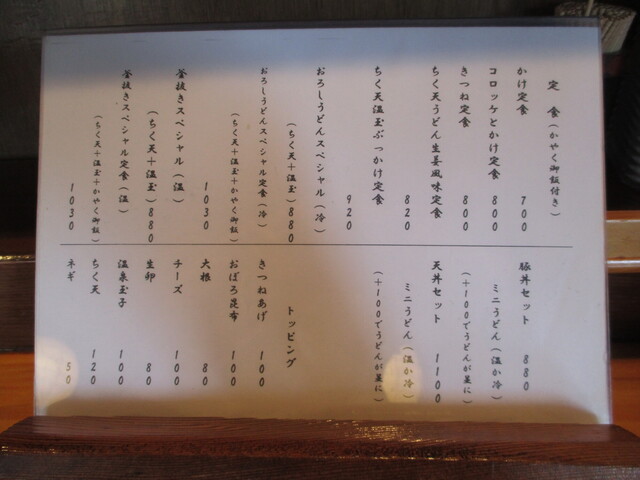 定食(かやく御飯付き)
かけ定食 700
コロッケとかけ定食 800
きつね定食 800
ちく天うどん生姜風味定食 820
ちく天温玉ぶっかけ定食 920
おろしうどんスペシャル(冷)
(ちく天+温玉) 880
おろしうどんスペシャル定食(冷)
(ちく天+温玉+かやく御飯) 1030
釜抜きスペシャル(温)
(ちく天+温玉) 880
釜抜きスペシャル定食(温)
(ちく天+温玉+かやく御飯) 1030
豚丼セット 880
ミニうどん(温か冷)
(+100でうどんが並に)
天丼セット 1100
ミニうどん(温か冷)
(+100でうどんが並に)
トッピング
きつねあげ 100
おぼろ昆布 100
大根 80
チーズ 100
生卵 80
温泉玉子 100
ちく天 120
ネギ 50